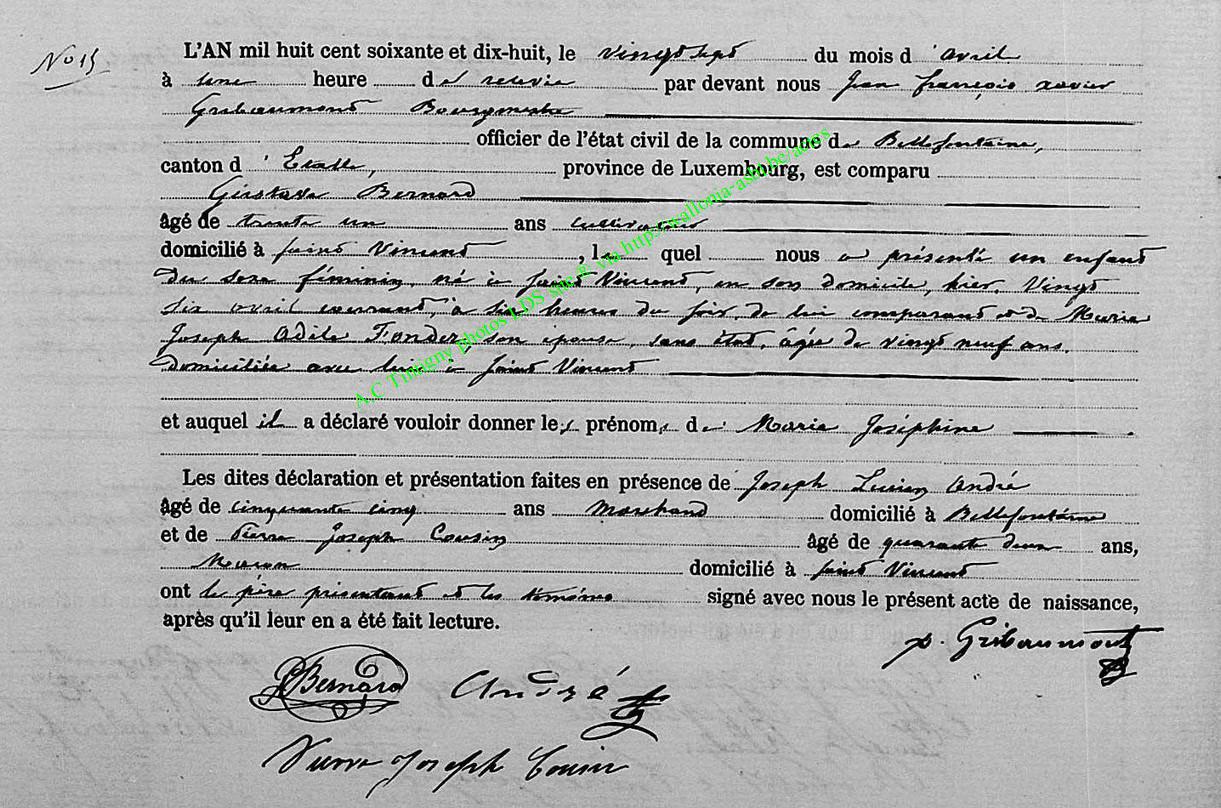 No 15
L'AN mil huit cent soixante et dix-huit, le vingt sept du mois d'avril
à une heure de relevée par devant nous Jean françois xavier
Gribaumont Bourgmestre
officier de l'état civil de la commune de Bellefontaine,
canton d'Etalle, province de Luxembourg, est comparu
Gustave Bernard
âgé de trente un ans cultivateur
domicilié à saint Vincent, lequel nous a présenté un enfant
du sexe féminin, né à saint Vincent, en son domicile, hier, Vingt
six avril courant, à six heures du soir, de lui comparant et de Marie
Joseph Adile Fonder, son épouse, sans état, âgée de vingt neuf ans,
domiciliée avec lui à saint Vincent
et auquel il a déclaré vouloir donner les prénoms de Marie Joséphine
Les dites déclaration et présentation faites en présence de Joseph Lucien André
âgé de cinquante cinq ans Marchand domicilié à Bellefontaine
et de Pierre Joseph Cousin âgé de quarante deux ans,
Maçon domicilié à saint Vincent
ont le père présentant et les témoins signé avec nous le présent acte de naissance,
après qu'il leur en a été fait lecture.
Gribaumont
GBernard André
Pierre Joseph Cousin
A.C Tintigny photos LDS site @ via http://wallonia-asbl.be/actes